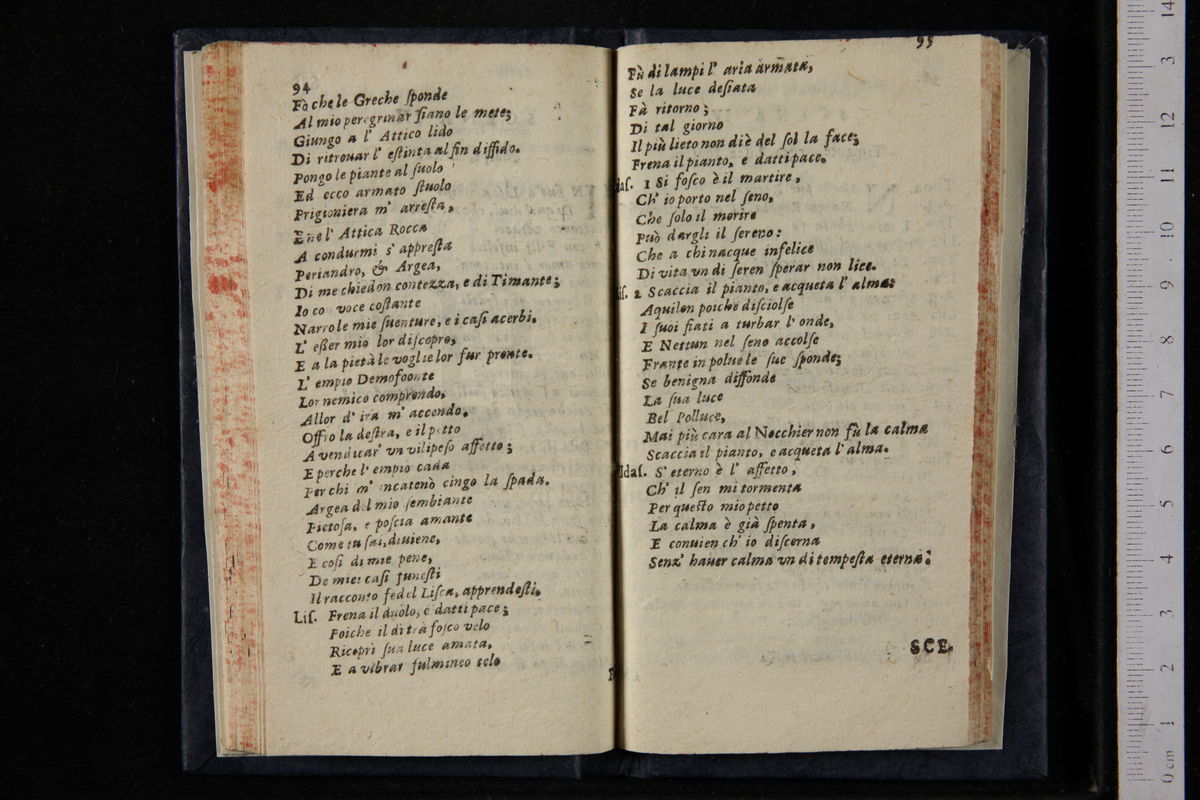 94
Fò che le Greche ſponde
Al mio peregrinar ſiano le mete;
Giungo a l' Attico lido
Di ritrouar l' eſtinta al fin diffido.
Pongo le piante al ſuolo
Ed ecco armato ſtuolo
Prigioniera m' arreſta,
E ne l' Attica Rocca
A condurmi s' appreſta
Periandro, & Argea,
Di me chiedon contezza, e di Timante;
Io con voce coſtante
Narro le mie ſuenture, e i caſi acerbi.
L' eſſer mio lor diſcopro,
E a la pietà le voglie lor fur pronte.
L' empio Demofoonte
Lor nemico comprendo,
Allor d' ira m' accendo.
Offro la deſtra, e il petto
A vendicar vn vilipeſo affetto;
E perche l' empio cada
Per chi m' incatenò cingo la ſpada.
Argea del mio ſembiante
Pietoſa, e poſcia amante
Come tu ſai, diuiene,
E coſi di mie pene,
De miei caſi funeſti
Il racconto fedel Liſca, apprendeſti.
Liſ. Frena il duolo, e datti pace;
Poiche il dì trà foſco velo
Ricoprì ſua luce amata,
E a vibrar fulmineo telo
95
Fù di lampi l' aria armata,
Se la luce deſiata
Fà ritorno;
Di tal giorno
Il più lieto non diè del ſol la face;
Frena il pianto, e datti pace.
Idaſ. 1 Sì foſco è il martire,
Ch' io porto nel ſeno,
Che ſolo il morire
Può dargli il ſereno:
Che a chi nacque infelice
Di vita vn dì ſeren ſperar non lice.
Liſ. 2 Scaccia il pianto, e acqueta l' alma:
Aquilon poiche diſciolſe
I ſuoi fiati a turbar l' onde,
E Nettun nel ſeno accolſe
Frante in polue le ſue ſponde;
Se benigna diffonde
La ſua luce
Bel Polluce,
Mai più cara al Nocchier non fù la calma
Scaccia il pianto, e acqueta l' alma.
Idaſ. S' eterno è l' affetto,
Ch' il ſen mi tormenta
Per queſto mio petto
La calma è già ſpenta,
E conuien ch' io diſcerna
Senz' hauer calma vn dì tempeſta eterna:
SCE.
0 cm 1 2 3 4 5 6 7 8 9 10 11 12 3 14